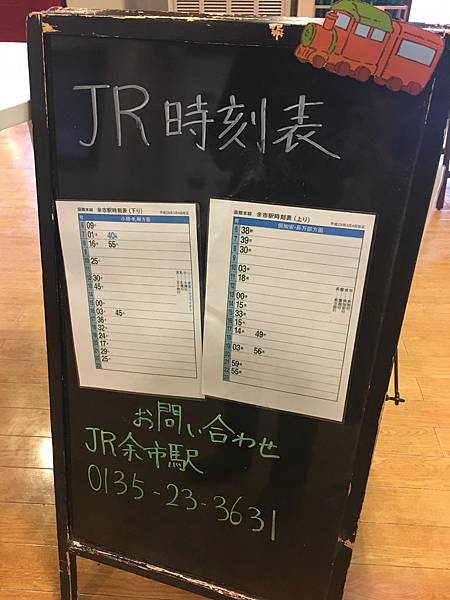 JR 時刻表
函館本線 余市駅時刻表(下り)
小樽・札幌方面
6 09
7 01 40
8 16 55
9
10 25
11
12 30
13 45
14
15 00
16 03 45
17 36
18 32
19 24
20 17
21 29
22 25
函館本線 余市駅時刻表(上り)
倶知安・長万部方面
6 38
7 39
8 30
9
10 03
11 18
12
13 00
14 15
15 33
16 15
17 14 49
18
19 03 56
20 59
21 56
22
お問い合わせ
JR余市駅
0135-23-3631